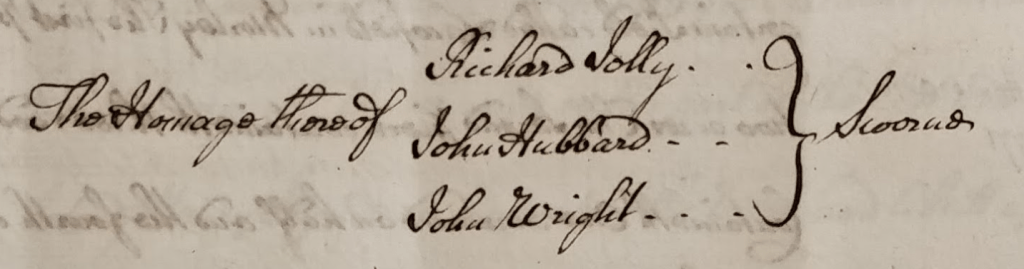 Richard Jolly. .
The Homage thereof John Hubbard. - - } Sworne
John Wright - - -